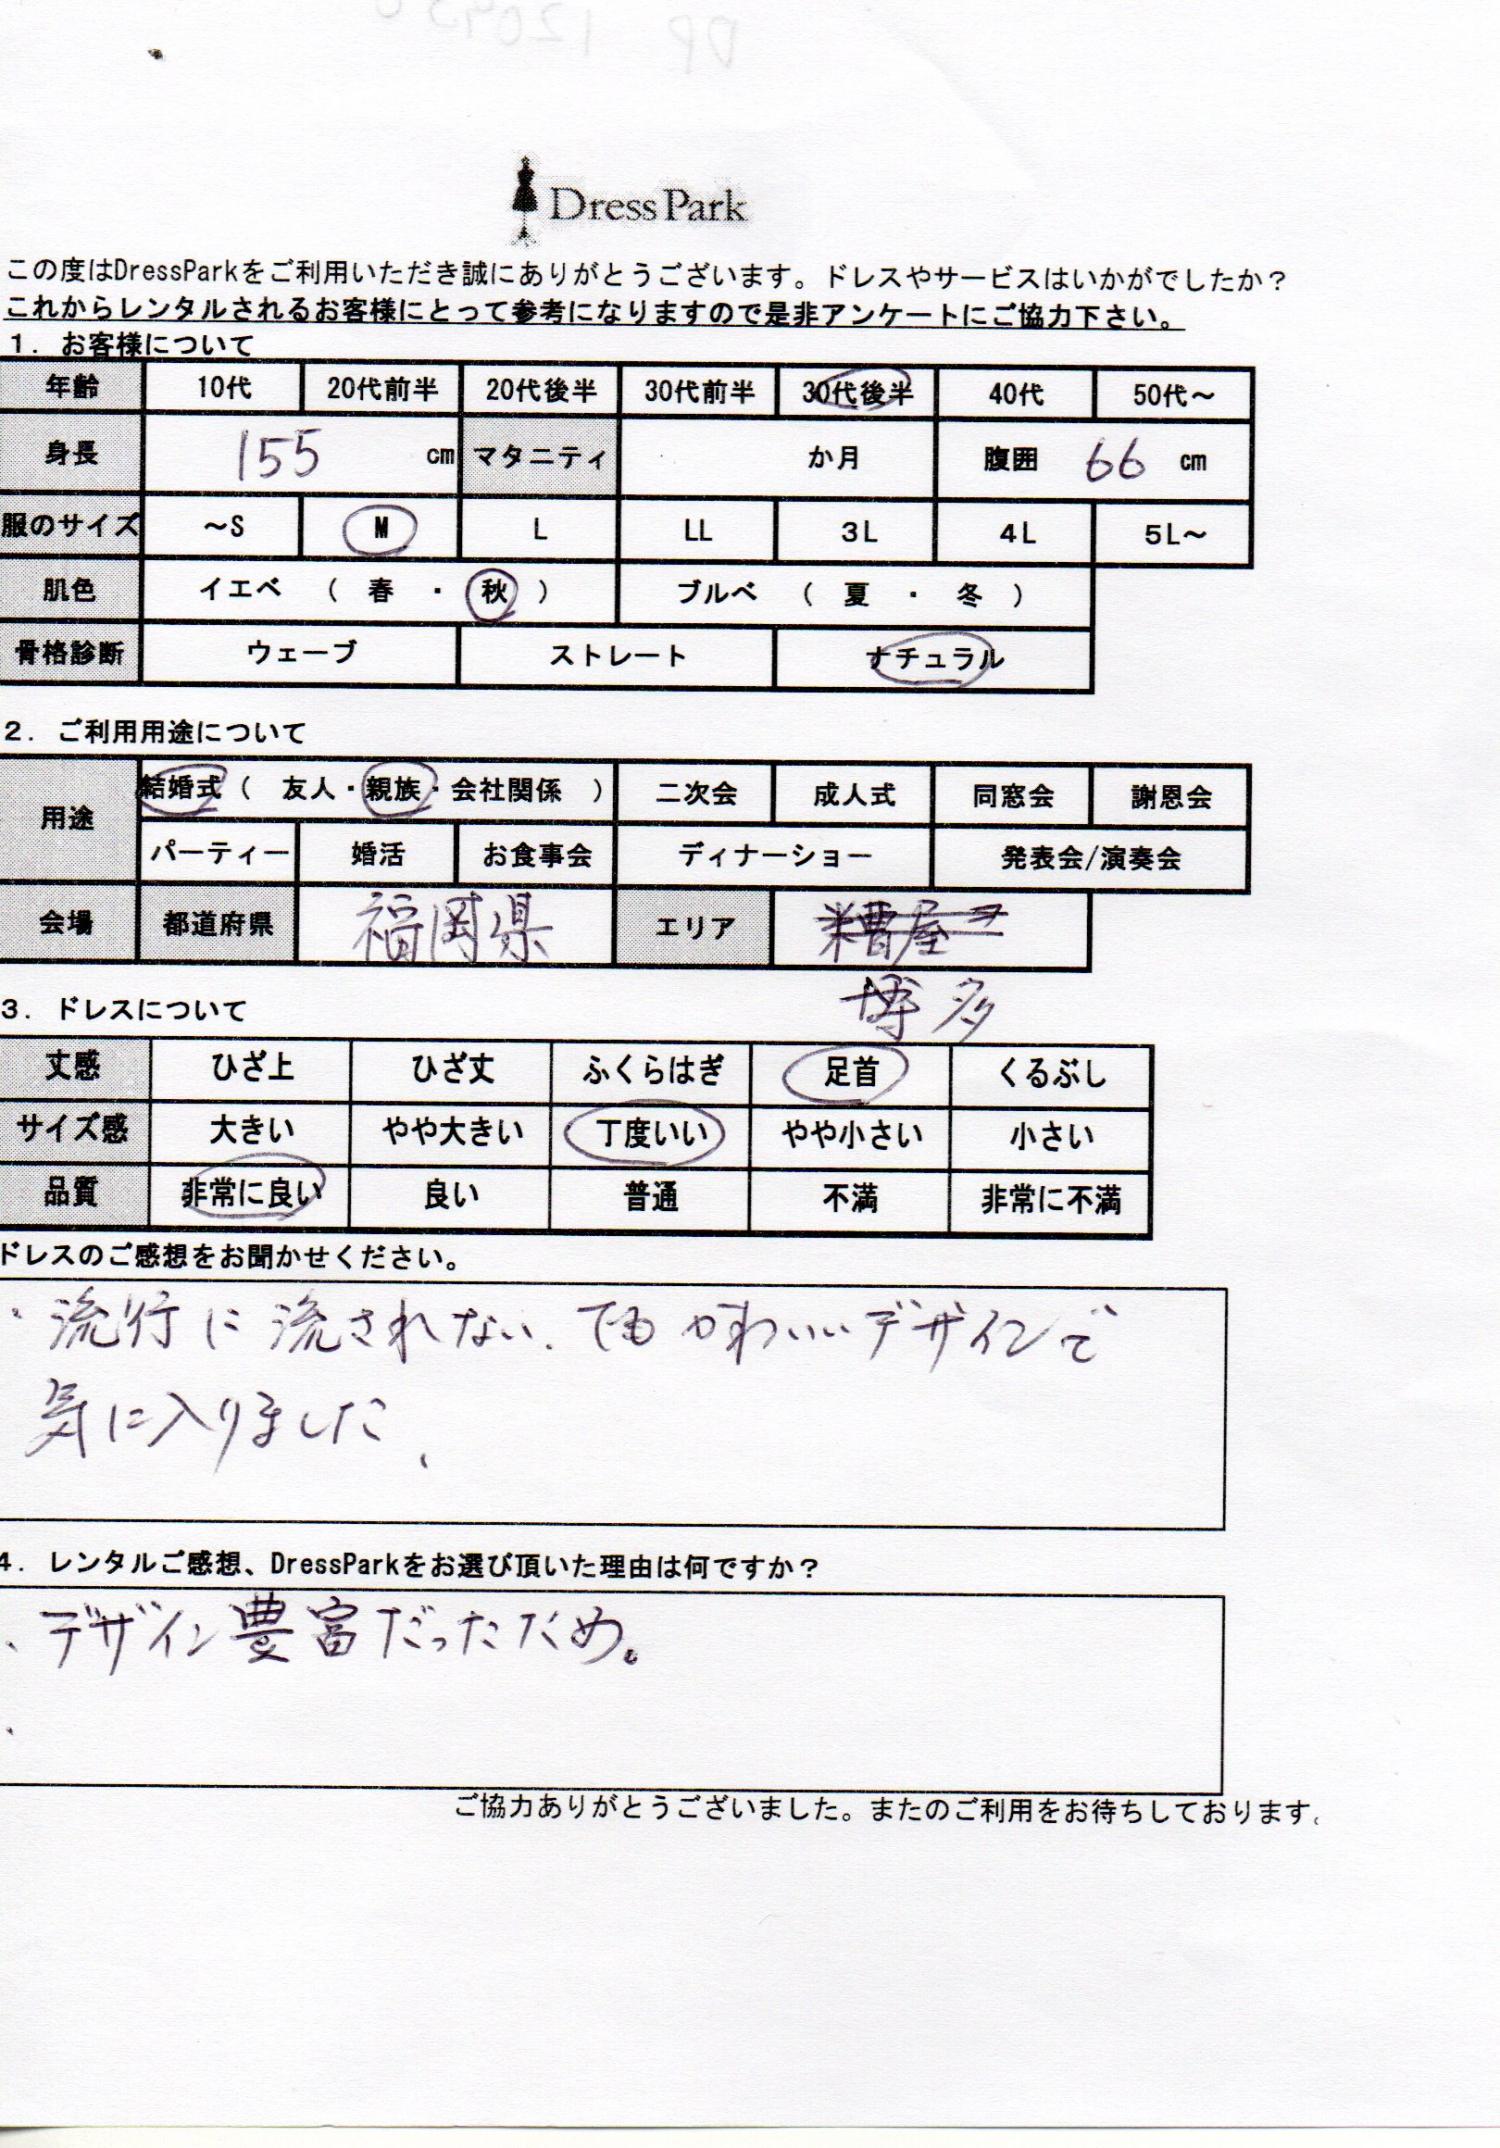 DP 12045
Dress Park
この度はDressParkをご利用いただき誠にありがとうございます。ドレスやサービスはいかがでしたか？
これからレンタルされるお客様にとって参考になりますので是非アンケートにご協力下さい。
1．お客様について
年齢 10代 20代前半 20代後半 30代前半 30代後半 40代 50代～
身長 155 cm マタニティ か月 腹囲 66 cm
服のサイズ ～S M L LL 3L 4L 5L～
肌色 イエベ （ 春 ・ 秋 ） ブルベ （ 夏 ・ 冬 ）
骨格診断 ウェーブ ストレート ナチュラル
2．ご利用用途について
用途 結婚式（ 友人・親族・会社関係 ） 二次会 成人式 同窓会 謝恩会
パーティー 婚活 お食事会 ディナーショー 発表会/演奏会
会場 都道府県 福岡県 エリア 糟屋
博多
3．ドレスについて
丈感 ひざ上 ひざ丈 ふくらはぎ 足首 くるぶし
サイズ感 大きい やや大きい 丁度いい やや小さい 小さい
品質 非常に良い 良い 普通 不満 非常に不満
ドレスのご感想をお聞かせください。
・流行に流されない、でもかわいいデザインで
気に入りました、
4．レンタルご感想、DressParkをお選び頂いた理由は何ですか？
、デザイン豊富だったため。
ご協力ありがとうございました。またのご利用をお待ちしております。